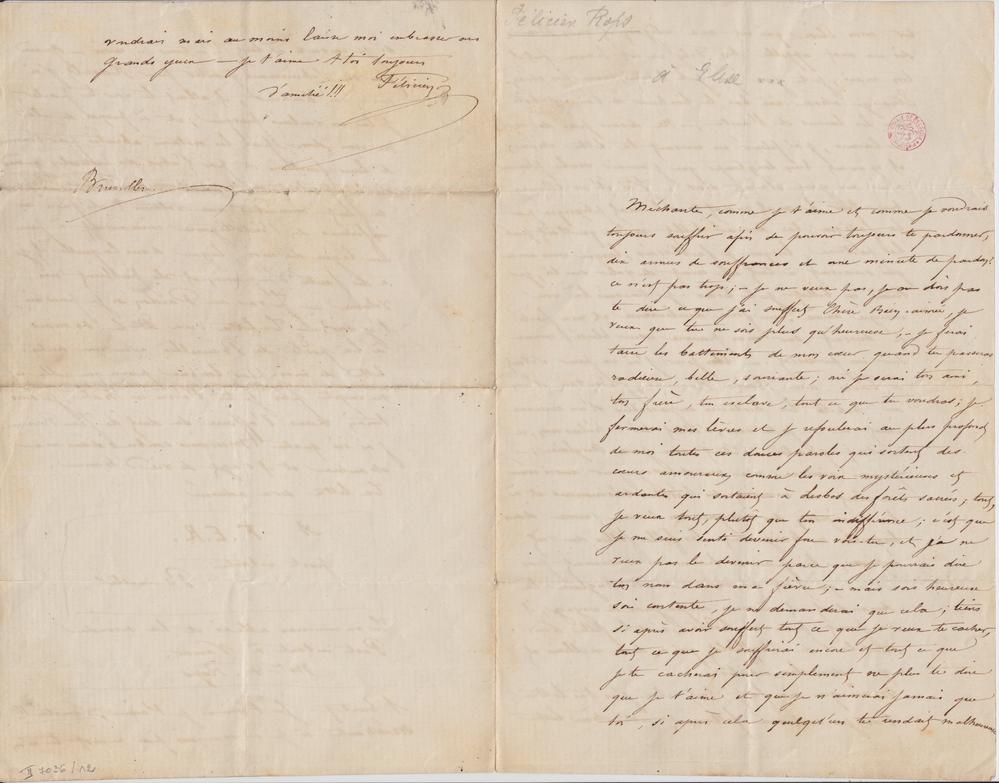 voudrais mais au moins laisse moi embrasser vos
grands yeux — je t'aime & toi toujours
Félicien
d'amitié !!!
Bruxelles
Félicien Rops
à Elise xxx
Méchante, comme je t'aime et comme je voudrais
toujours souffrir afin de pouvoir toujours te pardonner,
dix années de souffrances et une minute de pardon!
ce n'est pas trop; – je ne veux pas, je ne dois pas
te dire ce que j'ai souffert Chère Bien-aimée, je
veux que tu ne sois plus qu'heureuse, – je ferai
taire les battements de mon cœur quand tu passeras
radieuse, belle, souriante; je serai ton ami,
ton frère, ton esclave, tout ce que tu voudras; je
fermerai mes lèvres et je refoulerai au plus profond
de moi toutes ces douces paroles qui sortent des
cœurs amoureux comme les voix mystérieuses et
ardentes qui sortaient à Lesbos des forêts sacrées; tout,
je veux tout, plutôt que ton indifférence; c'est que
je me suis senti devenir fou vois-tu, et je ne
veux pas le devenir parce que je pourrais dire
ton nom dans ma fièvre; – mais sois heureuse
sois contente, je ne demanderai que cela; tiens
si après avoir souffert tout ce que je veux te cacher,
tout ce que je souffrirai encore et tout ce que
je te cacherai pour simplement ne plus te dire
que je t'aime et que je n'aimerai jamais que
toi, si après cela quelqu'un te rendait malheureuse
II 7036/12